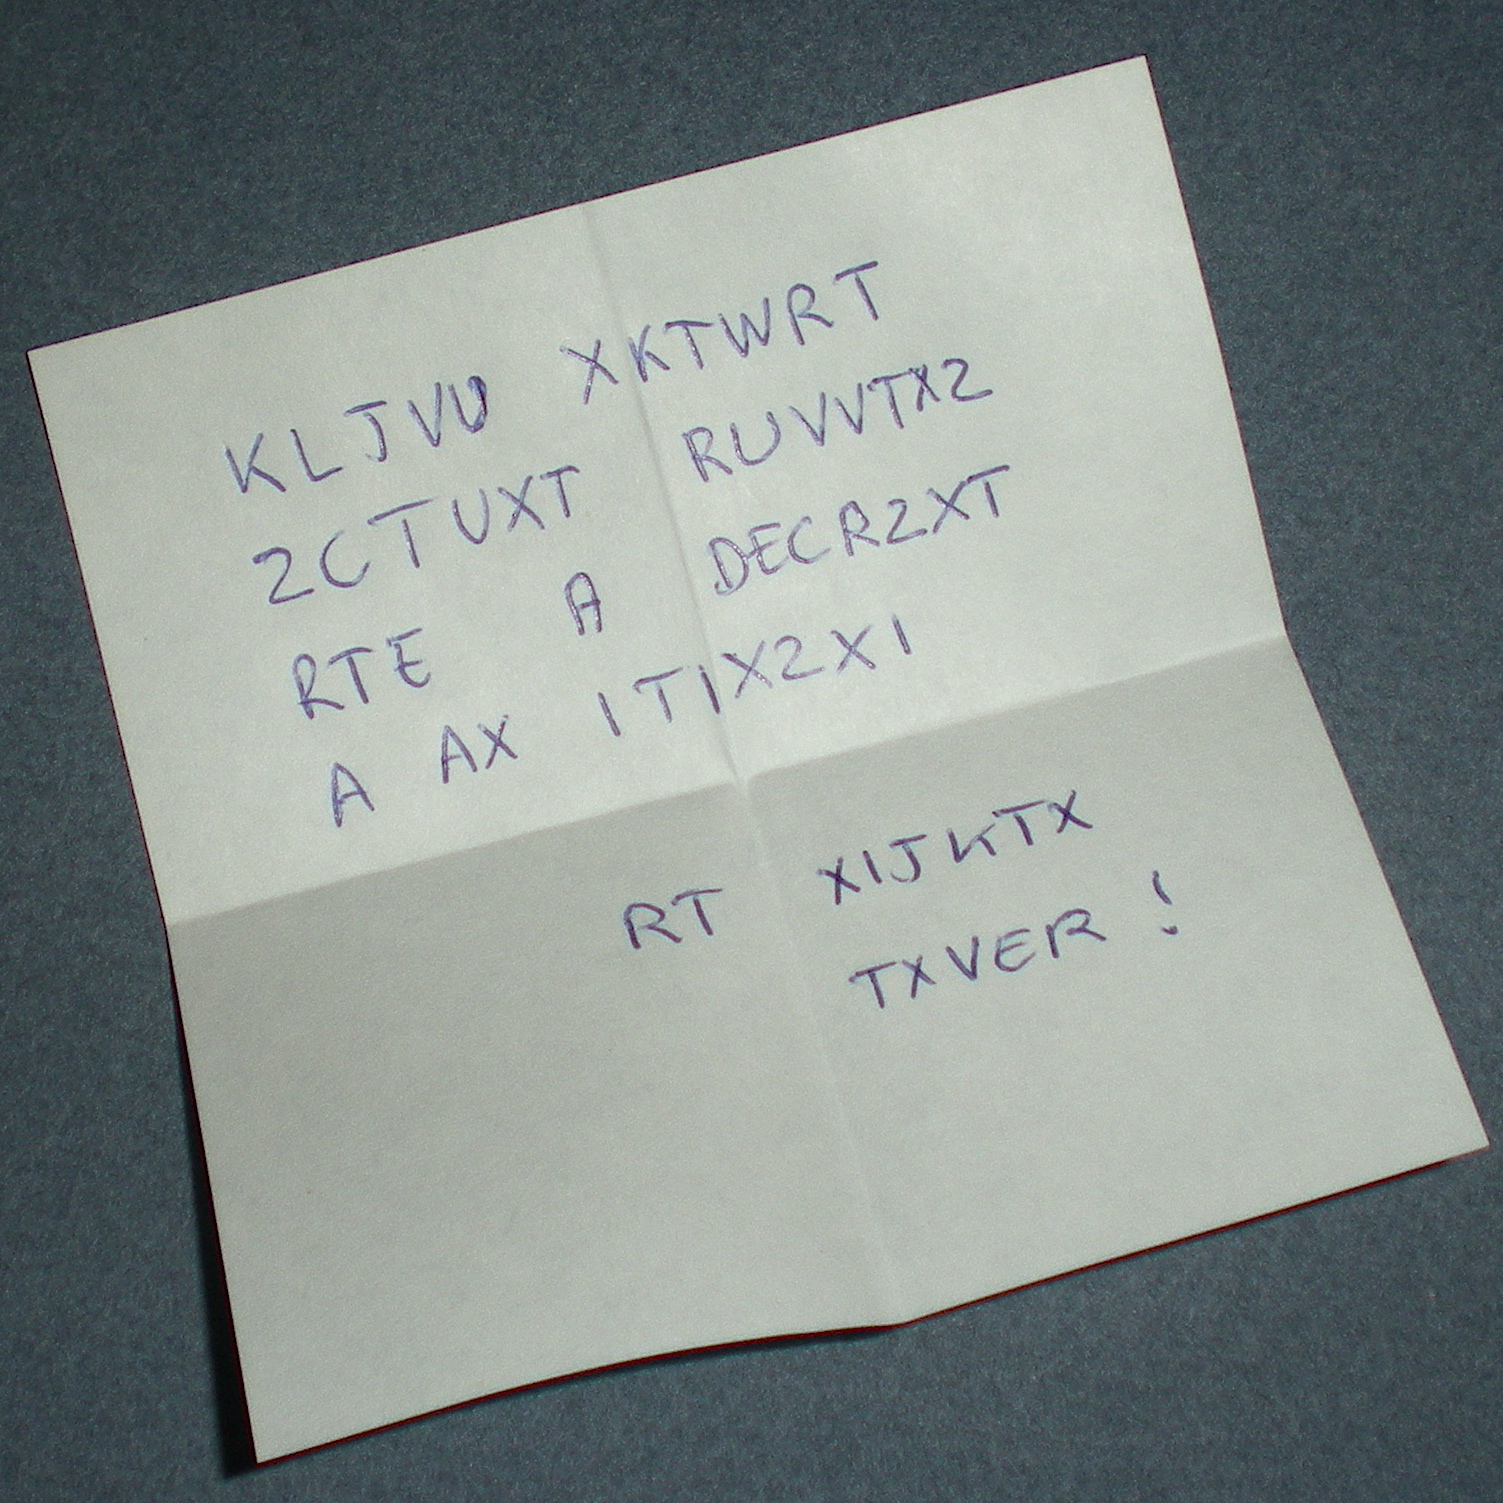 KLJVU XKTWRT
2CTUXT RUVVTX2
RTE A DECR2XT
A AX ITIX2XI
RT XIJKTX
TXVER !